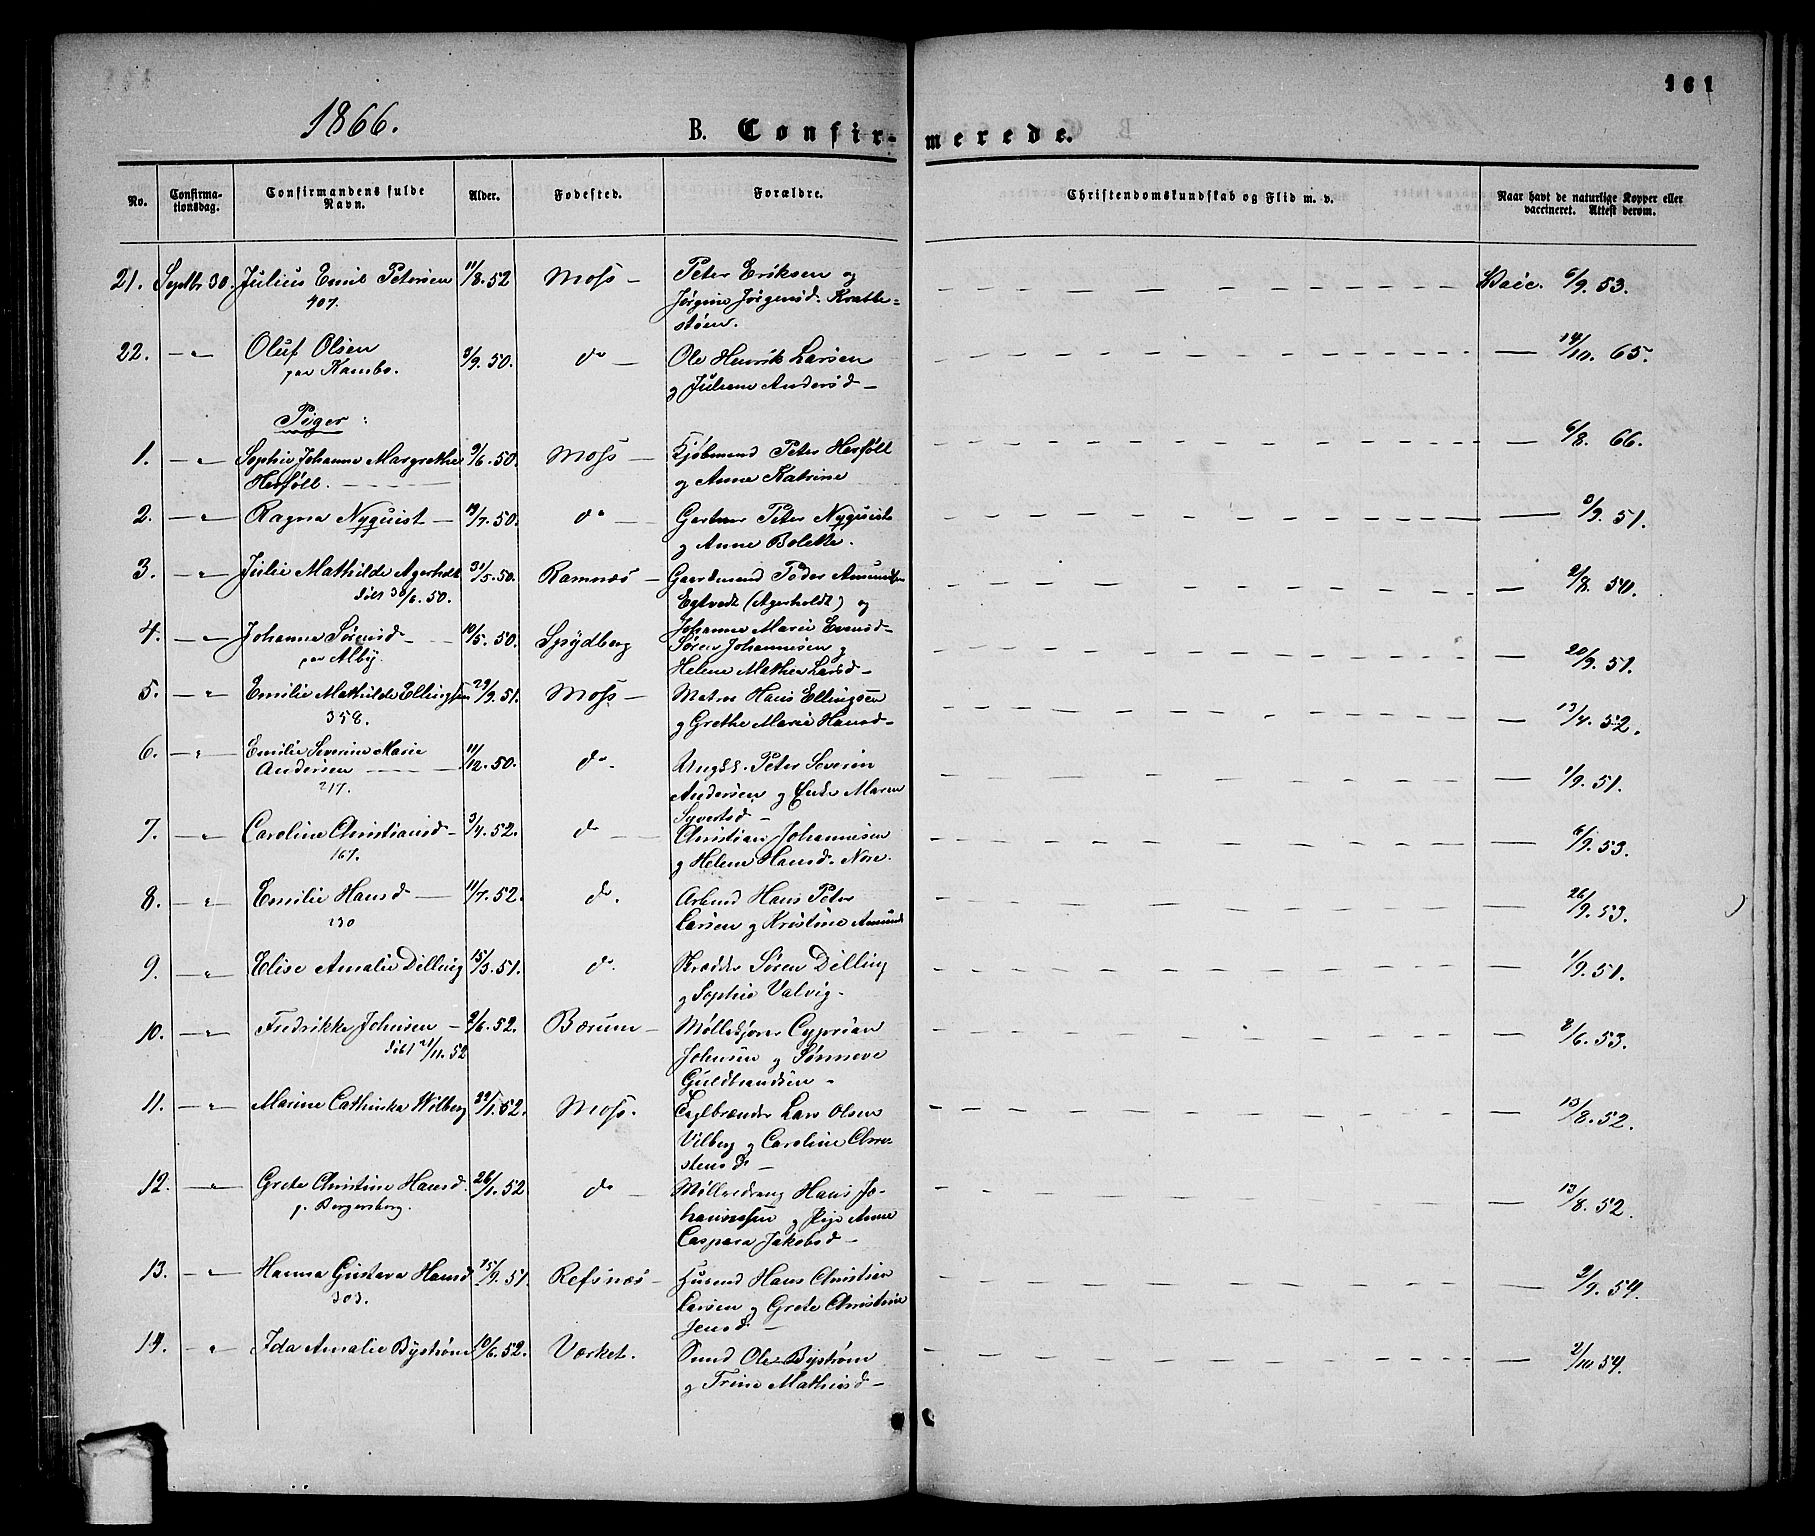 161
1866.
B. Confirmerede.
No.
Confirmationsdag.
Confirmandens fulde Navn.
Alder.
Fødested.
Forældre.
Christendomskundskab og Flid m. v.
Naar havt de naturlige Kopper eller vaccineret. Attest derom.
21. Septbr 30. Julius Emil Petersen 11/8. 52 Moss — Peter Eriksen og Vacc. 6/9. 53.
407. Jørgine Jørgensd. Krabbe-
støen.
22. — " Oluf Olsen 3/9. 50. do — Ole Henrik Larsen — 14/10. 65.
paa Kambo. og Juliane Andersd —
Piger :
1. — " Sophie Johanne Margrethe 9/6. 50. Moss — Kjøbmand Peter Herføll — 6/8. 66.
Herføll. og Anne Katrine
2. — " Ragna Nyquist — 19/7. 50. do — Gartner Peter Nyquist — 3/9. 51.
og Anne Bolette.
3. — " Julie Mathilde Agerholt 31/5. 50. Ramnæs — Gaardmand Peder Amundsen — 2/8. 50.
døbt 30/6. 50. Egtvedt (Agerholdt) og
Johanne Marie Evensd —
4. — " Johanne Sørensd — 10/5. 50. Spydberg Søren Johannesen og — 20/9. 51.
paa Alby. Helene Mathea Larsd —
5. — " Emilie Mathilde Ellingsen 29/9. 51. Moss — Matros Hans Ellingsen — 13/4. 52.
358. og Grethe Marie Hansd —
6. — " Emilie Severine Marie 11/12. 50. do. Ungk. Peter Severin — 1/9. 51.
Andersen — Andersen og Enke Maren
217. Syvertsd —
7. — " Caroline Christiansd — 3/4. 52. do — Christian Johannesen — 6/9. 53.
167. og Helene Hansd. Nore.
8. — " Emilie Hansd — 11/7. 52. do. Arbmd Hans Peter — 26/9. 53.
130 Larsen og Kristine Amunds
9. — " Elise Amalie Dilling 15/3. 51. do. Skrædder Søren Dilling — 1/9. 51.
og Sophie Valvig.
10. — " Fredrikke Johnsen — 2/6. 52. Bærum — Møllekjører Cyprian — 8/6. 53.
døbt 21/11. 52 Johnsen og Sønneve
Guldbrandsen —
11. — " Marine Cathinka Wilberg 29/1. 52. Moss. Teglbrænder Lars Olsen — 13/8. 52.
Vilberg og Caroline Chri-
stensd —
12. — " Grete Christine Hansd. 26/1. 52 do — Mølledreng Hans Jo- — 13/8. 52.
p. Bergersborg. hannesen og Pige Anne
Caspara Jakobsd —
13. — " Hanna Gustava Hansd 15/9. 51. Refsnæs — Husmd Hans Christian — 2/9. 54.
303. Larsen og Grete Christine
Jensd —
14. — " Ida Amalie Bystrøm 10/6. 52. Værket. Smed Ole Bystrøm — 2/10 54.
og Trine Mathisd —